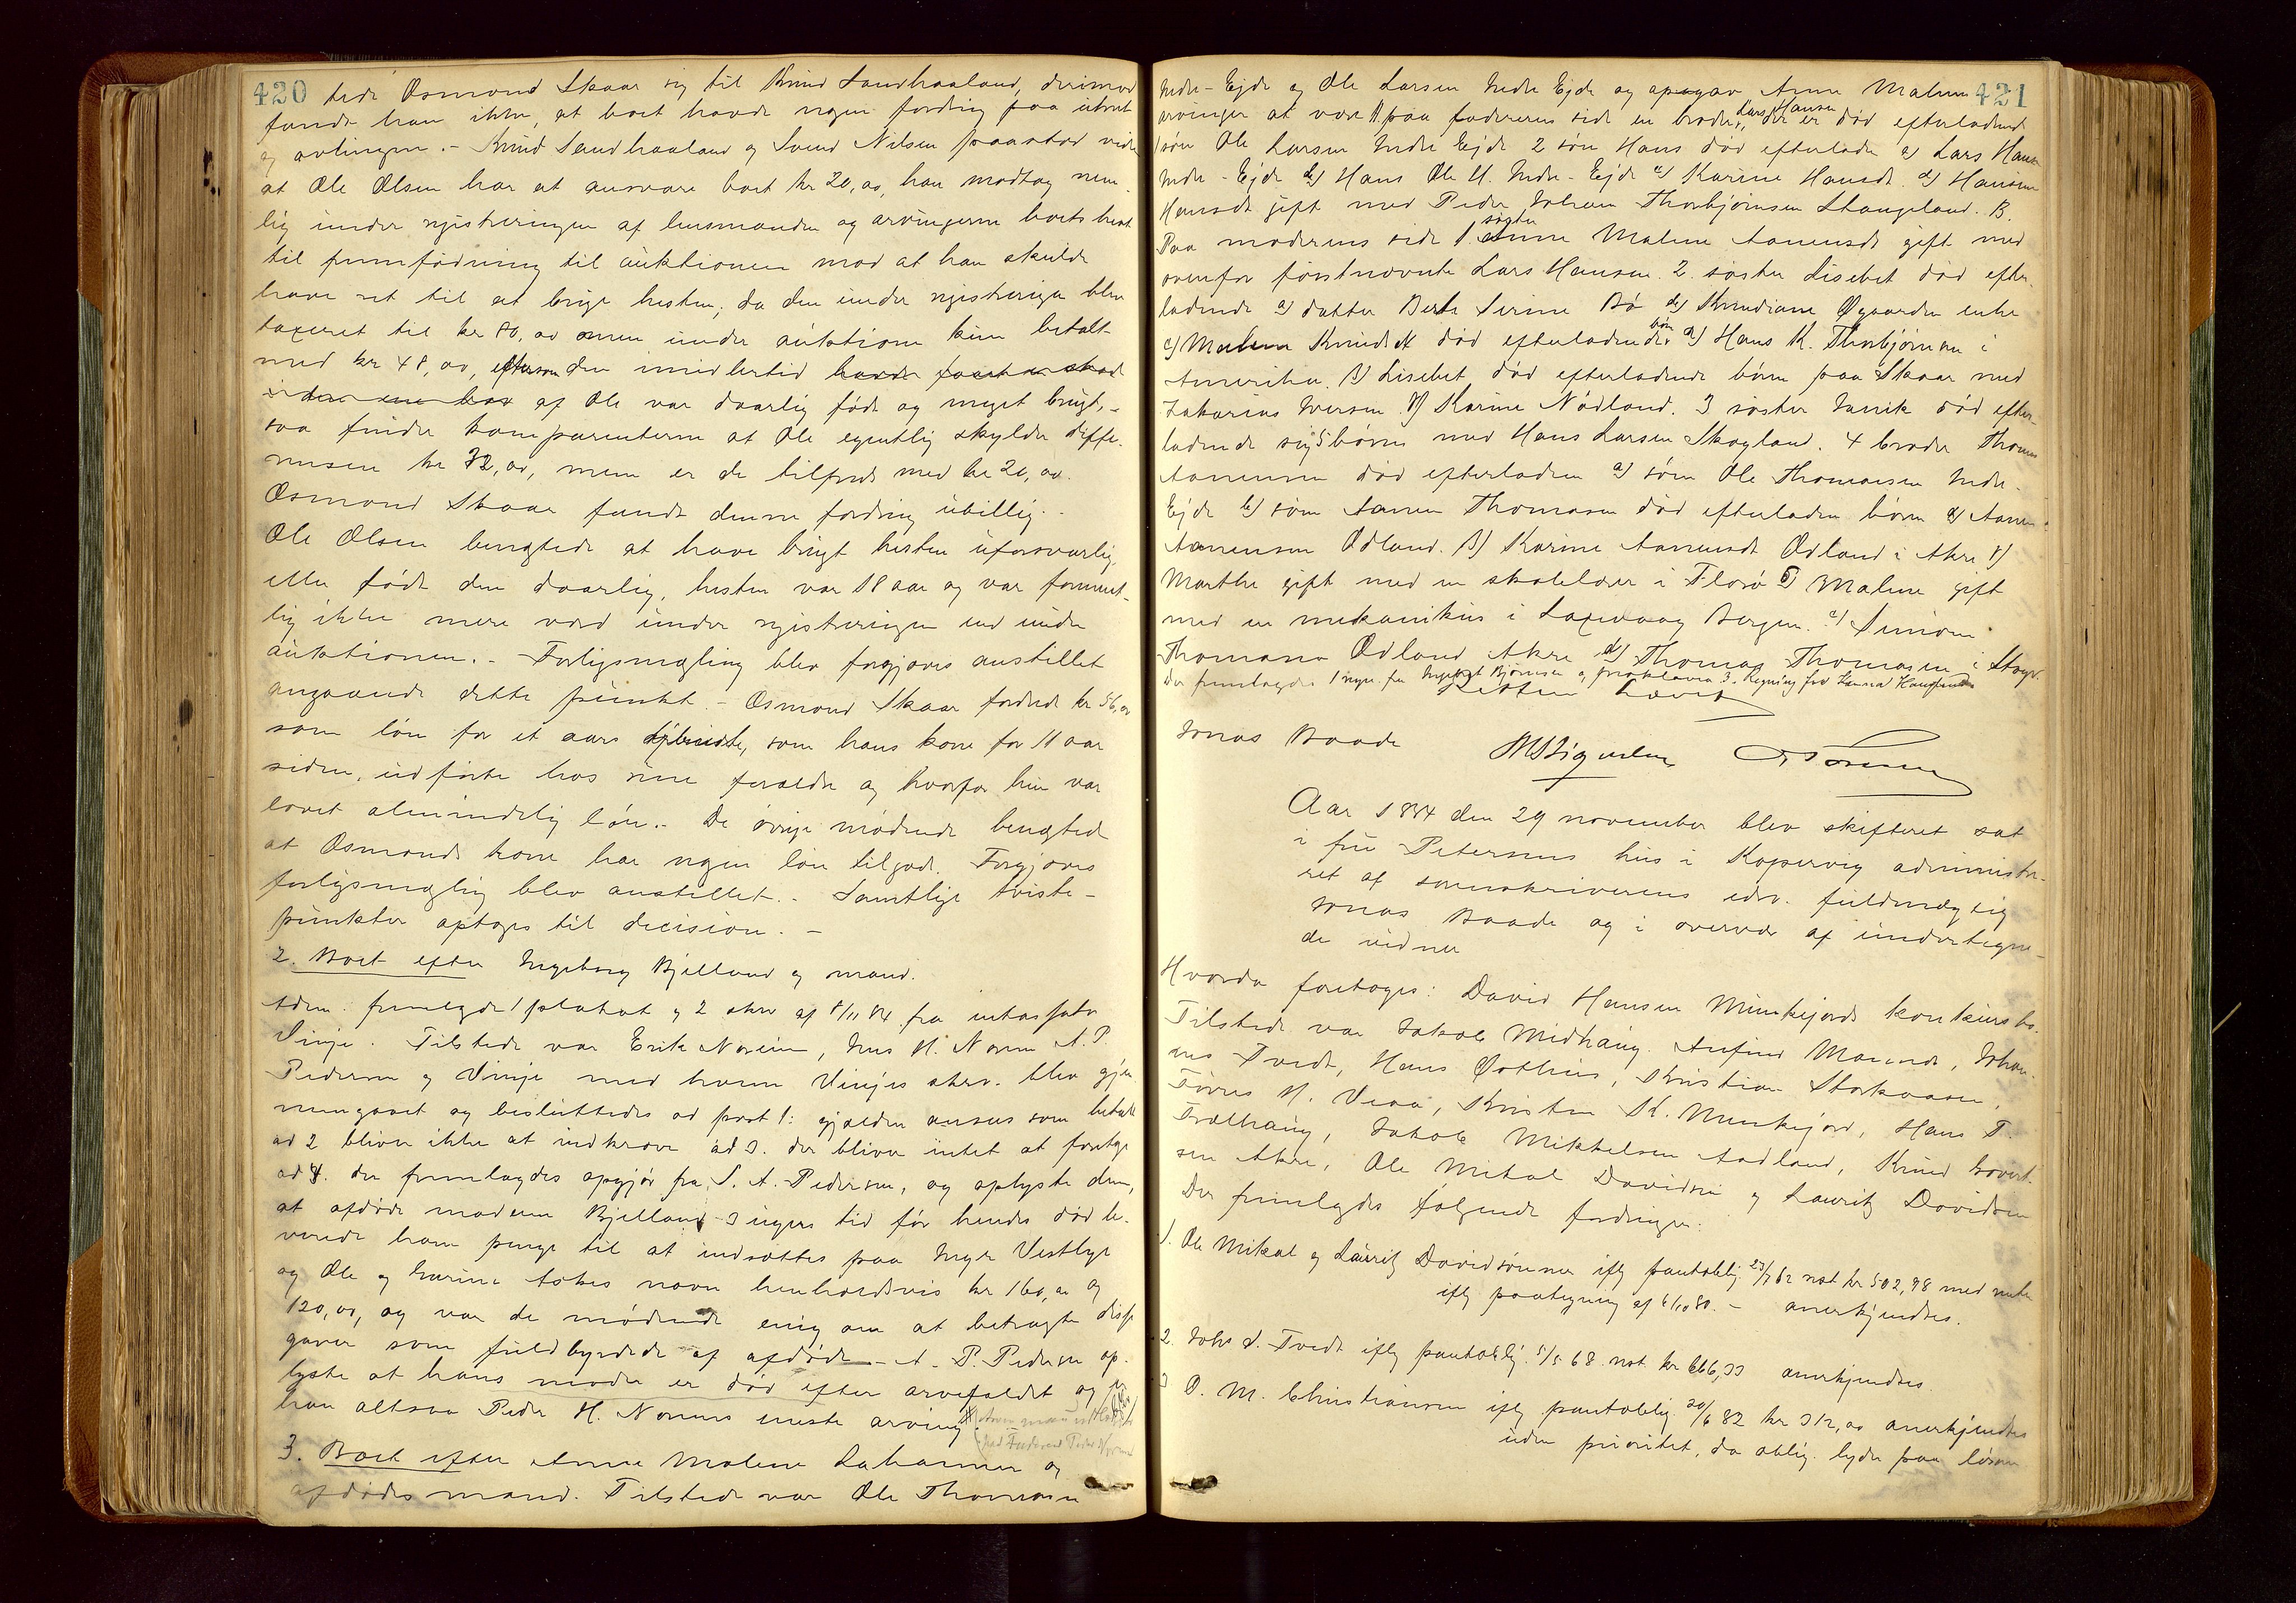 420
tede Osmond Skaar sig til Knud Sandhaaland, derimod
fandt han ikke, at boet havde nogen fordring paa utræt
og avlingen. - Knud Sandhaaland og Svend Nilsen paastod videre
at Ole Olsen har at ansvare boet kr 20,00, han modtog nem-
lig under registreringen af lensmanden og arvingerne boets hest
til fremfødning til auktionen mod at han skulde
have ret til at bruge hesten; da den under registreringen blev
taxeret til kr 80,00 men under auktionen kun betalt
med kr 48,00, eftersom den imidlertid havde
af Ole var daarlig født og meget brugt, -
saa finder komparenterne at Ole egentlig skylder diffe-
rensen kr 32,00, men er de tilfreds med kr 20,00.
Osmond Skaar fandt denne fordring ubillig. -
Ole Olsen benegtede at have brugt hesten uforsvarlig,
eller født den daarlig, hesten var 18 aar og var forment-
lig ikke mere værd under registreringen end under
auktionen. - Forligsmægling blev forgjæves anstillet
angaaende dette punkt. - Osmond Skaar fordrede kr 56,00
som løn for et aars tjeneste, som hans kone for 11 aar
siden, udførte hos sine forældre og hvorfor hun var
lovet almindelig løn. - De øvrige mødende benegtede
at Osmonds kone har nogen løn tilgode. Forgjæves
forligsmægling blev anstillet. - Samtlige tviste-
punkter optoges til decision. -
2. Boet efter Ingeborg Bjelland og mand.
Adm. fremlagde 1 plakat og 2 skrv af 8/11 84 fra inkassator
Vinje. Tilstede var Erik Noreim, Jens H. Norem A. P.
Pedersen og Vinje med hvem Vinjes skrv. blev gjen-
nemgaaet og besluttedes ad post 1: gjælden ansees som betalt
ad 2 bliver ikke at indkræve ad 3. der bliver intet at foretage
ad 4. der fremlagdes opgjør fra S. A. Pedersen, og oplyste denne,
at afdøde madame Bjelland 3 ugers tid før hendes død le-
verede ham penge til at indsættes paa Inger Vestlye
og Ole og Karine Askes navn henholdsvis kr 160,00 og
120,00, og var de mødende enig om at betragte disse
gaver som fuldbyrdede af afdøde - A. P. Pedersen op-
lyste at hans moder er død efter arvefaldet og er
han altsaa Peder H. Norems eneste arving.
3. Boet efter Anne Malene Zakarmen og
afdødes mand. Tilstede var Ole Thomasen
421
Indre-Ejde og Ole Larsen Indre Ejde og opgav Anne Malenes
arvinger at være A paa faderens side en broder, Lars Hansen der er død efterladende
1 søn Ole Larsen Indre Ejde 2 søn Hans død efterladen a) Lars Hansen
Indre-Ejde b) Hans Ole H. Indre-Ejde c) Karine Hansdt. d) Hansine
Hansdt gift med Peder Johan Thorbjørnsen Stangeland. B.
Paa moderens side 1. søster Anne Malene Aanensdt gift med
ovenfor førstnævnte Lars Hansen. 2. søster Lisebet død efter-
ladende a) datter Berte Serine Bø b) Knudiane Øgaarden enke
c) Malene Knudsdt død efterladende børn α) Hans K. Thorbjørnsen i
Amerika. β) Lisebet død efterladende børn paa Skaar med
Zakarias Iversen γ) Karine Nødland. 3 søster Jannik død efter-
ladende sig 5 børn med Hans Larsen Skogland. 4 broder Thomas
Aanensen død efterladen a) søn Ole Thomassen Indre-
Ejde b) søn Aanen Thomasen død efterladen børn α) Aanen
Aanensen Ødland. β) Karine Aanensdt Ødland i Akre γ)
Marthe gift med en skolelærer i Florø δ) Malene gift
med en mekanikus i Laxevaag Bergen. c) Simon
Thomasen Ødland Akre d) Thomas Thomasen i Stavgr.
Der fremlagdes 1 regn. fra Ingebrigt Bjørnsen og proklama 3. Regning fra Hansine
Retten hævet
Jonas Baade
Aar 1884 den 29 november blev skifteret sat
i fru Petersens hus i Kopervig administre-
ret af sorenskriverens edsv. fuldmægtig
Jonas Baade og i overvær af undertegne-
de vidner
Hvorda foretoges: David Hansen Munkejords konkursbo.
Tilstede var Jakob Midhaug. Anfind Marende, Johan-
nes Tvedt, Hans Østhus, Kristian Storkaasen,
Tørres H. Veaa, Kristen K. Munkejord, Hans T.
Trælhaug, Jakob Mikkelsen Aadland, Knud Govert-
sen Akre, Ole Mikal Davidsen og Lauritz Davidsen
Der fremlagdes følgende fordringer:
1. Ole Mikal og Lauritz Davidsønner iflg pantoblig 23/7 62 rest kr 502,98 med renter
iflg paategning af 6/10 80. - anerkjendtes.
2. Johs S. Tvedt iflg pantoblig. 5/5 68 rest kr 666,33 anerkjendtes.
3 O. M. Christiansen iflg pantoblig 20/6 82 kr 312,00 anerkjendtes
uden prioritet, da oblig. lyder paa løsøre